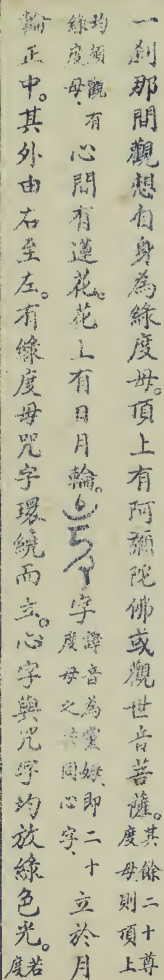 一剎那間觀想自身為綠度母。頂上有阿彌陀佛或觀世音菩薩。其餘二十尊度母則頂上
均須觀有綠度母、心間有蓮花。花上有日月輪。字譯音為黨姆、即二十度母之共同心字、立於月
輪正中。其外由右至左。有綠度母咒字環繞而立。心字與咒字均放綠色光。若度